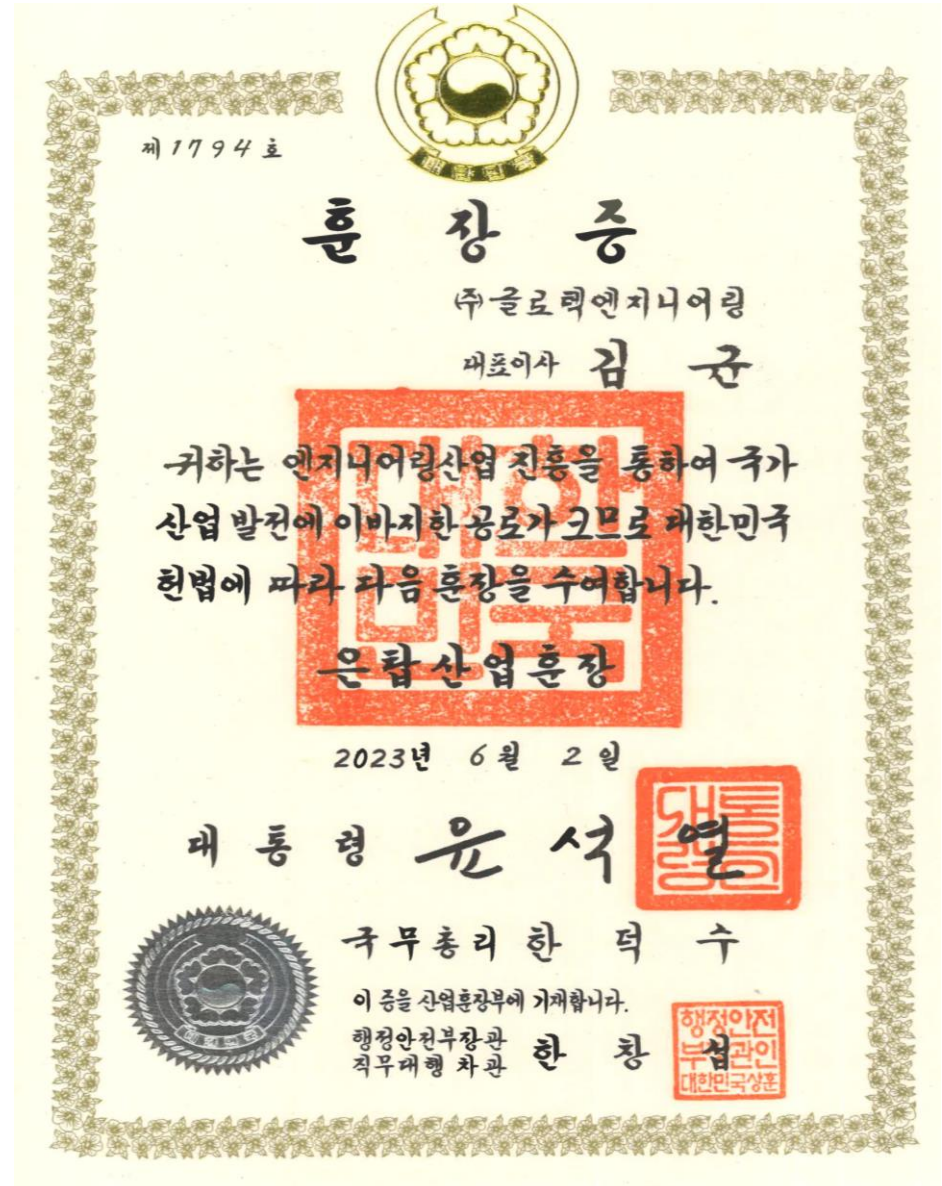 대한민국
제1794호
훈장증
㈜글로텍엔지니어링
대표이사 김균
귀하는 엔지니어링산업 진흥을 통하여 국가
산업 발전에 이바지한 공로가 크므로 대한민국
헌법에 따라 다음 훈장을 수여합니다.
은탑산업훈장
대한
민국
2023년 6월 2일
대통령 윤석열
대통
령의
국무총리 한덕수
이 증을 산업훈장부에 기재합니다.
행정안전부장관
직무대행 차관 한창섭
행정안전
부장관인
대한민국상훈
대한민국